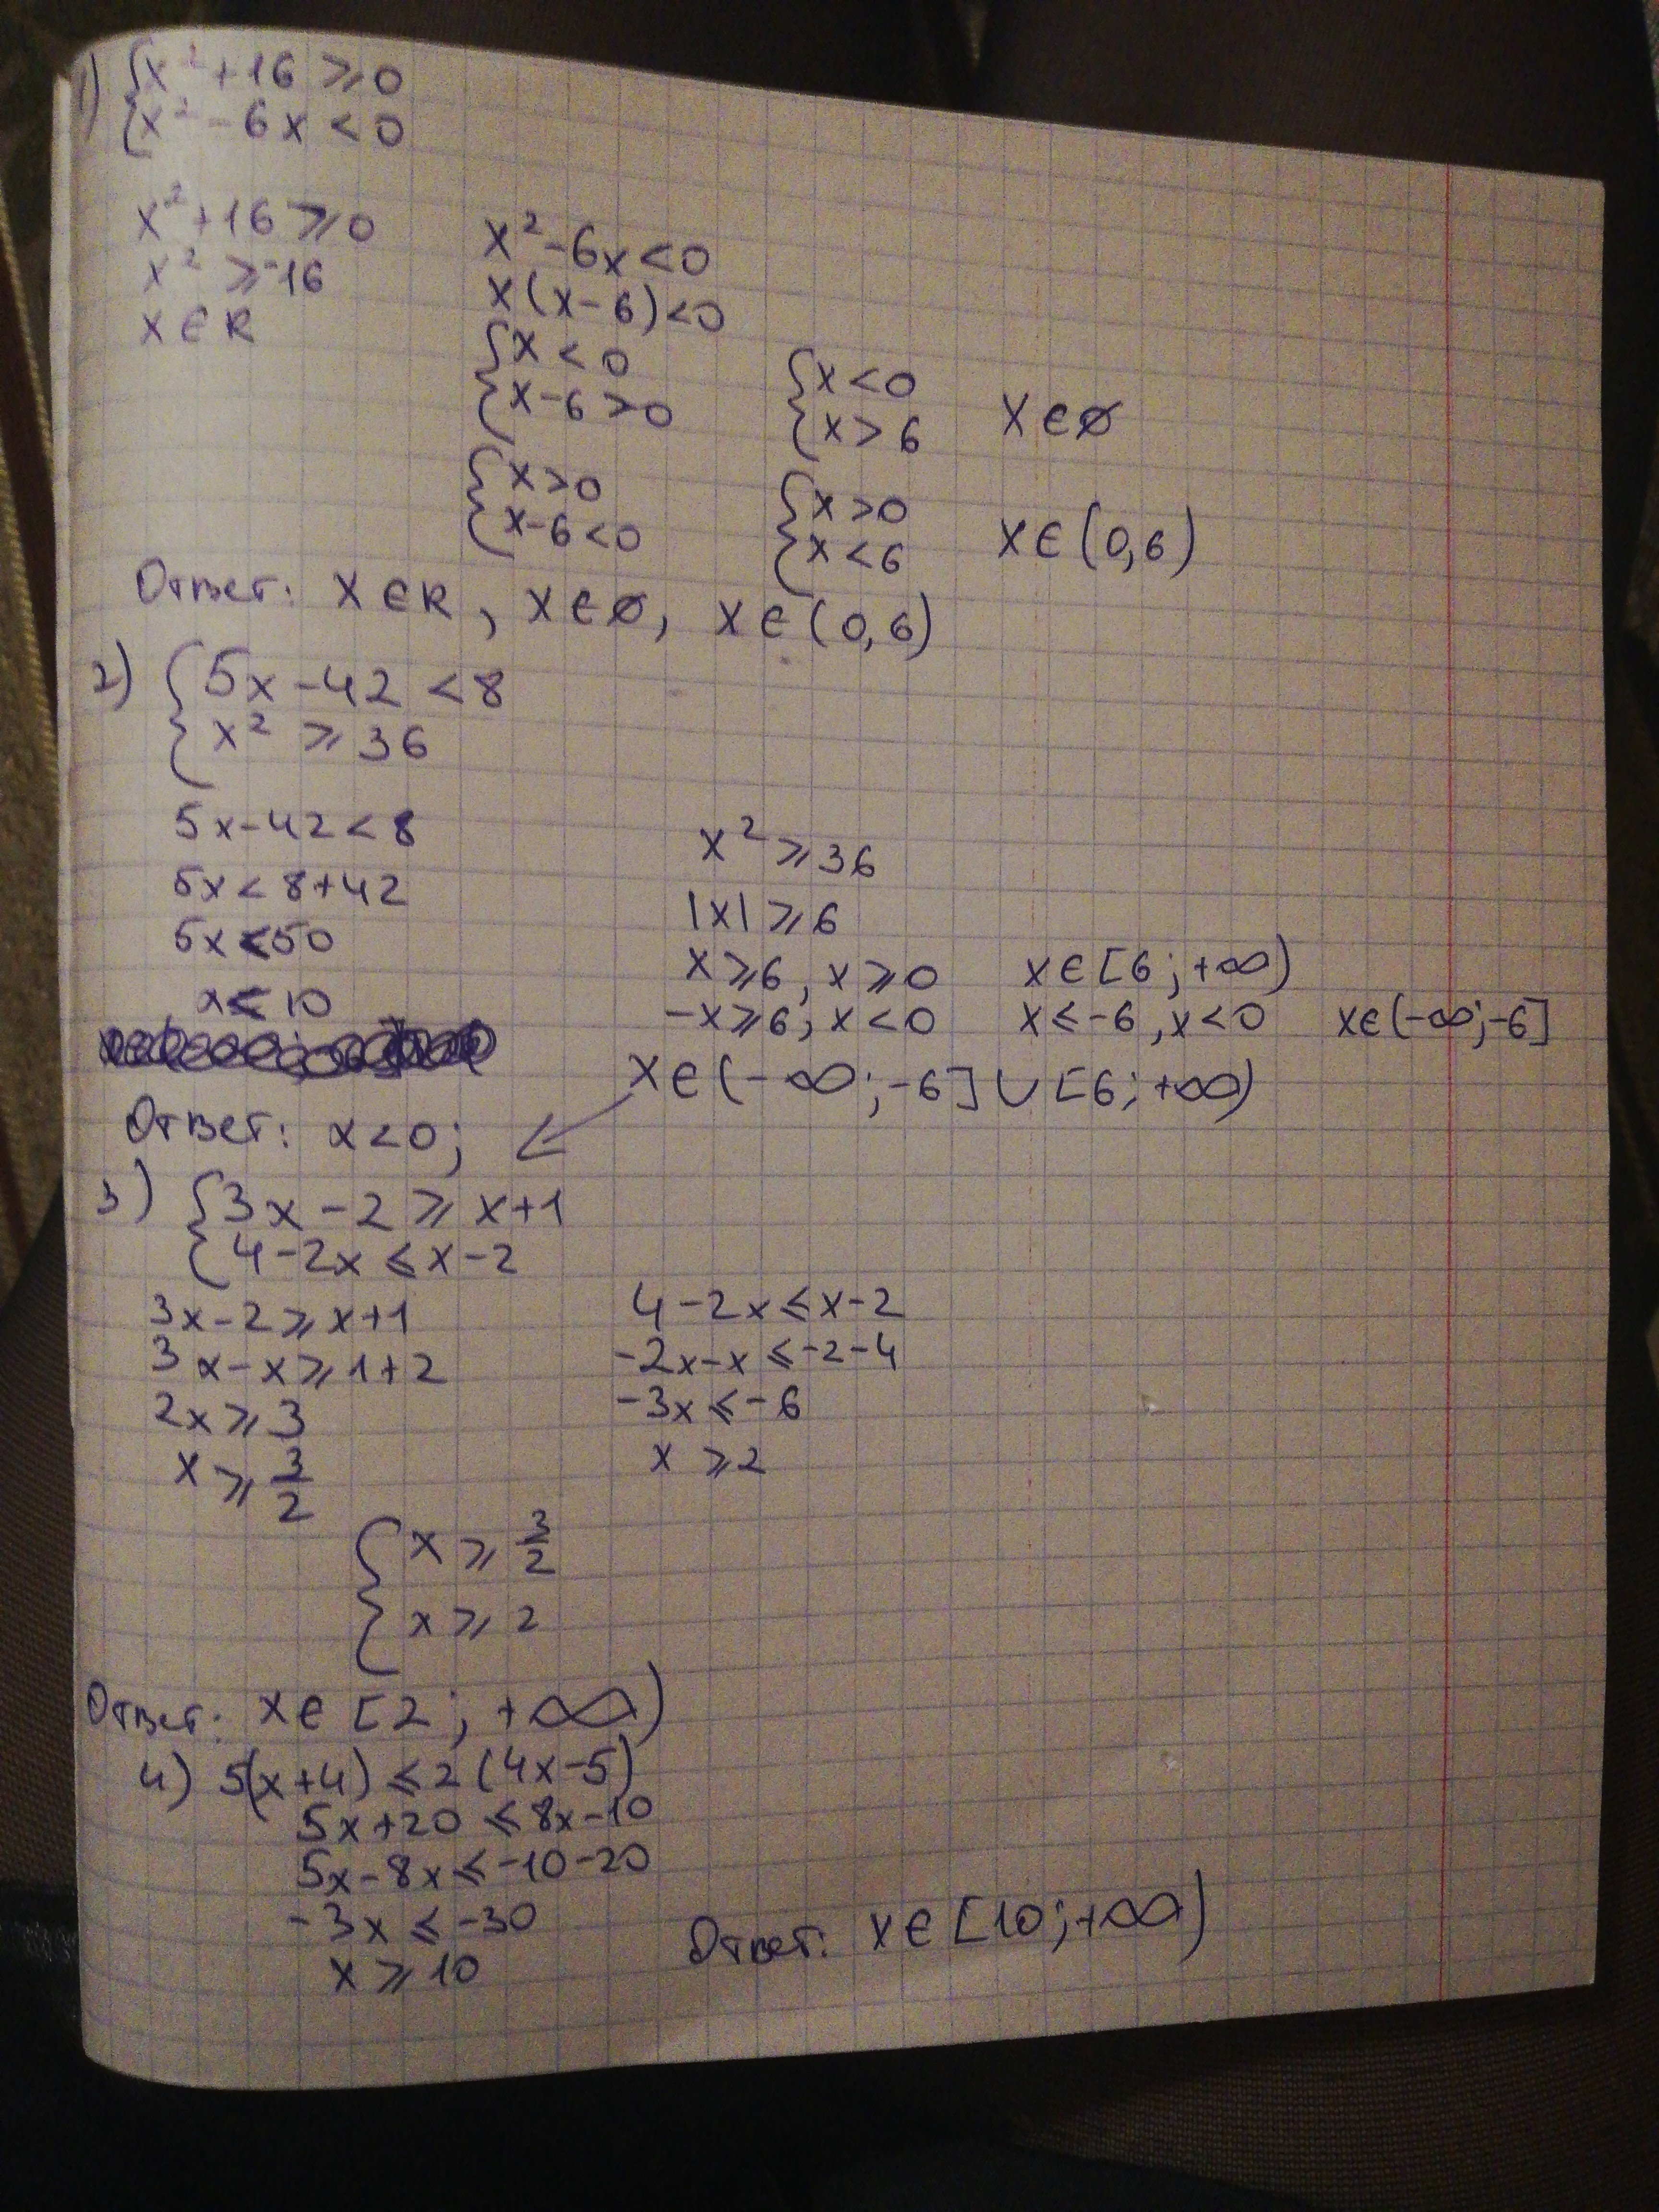 1) {x²+16 ⩾ 0
{x²-6x < 0
x²+16 ⩾ 0
x² ⩾ -16
x ∈ R
x²-6x < 0
x(x-6) < 0
{x < 0
{x-6 > 0
{x < 0
{x > 6
x ∈ ∅
{x > 0
{x-6 < 0
{x > 0
{x < 6
x ∈ (0,6)
Ответ: x ∈ R, x ∈ ∅, x ∈ (0,6)
2) {5x-42 < 8
{x² ⩾ 36
5x-42 < 8
5x < 8+42
5x < 50
x < 10
x² ⩾ 36
|x| ⩾ 6
x ⩾ 6, x ⩾ 0 x ∈ [6; +∞)
-x ⩾ 6, x < 0 x ⩽ -6, x < 0 x ∈ (-∞; -6]
x ∈ (-∞; -6] ∪ [6; +∞)
Ответ: x < 0;
3) {3x-2 ⩾ x+1
{4-2x ⩽ x-2
3x-2 ⩾ x+1
3x-x ⩾ 1+2
2x ⩾ 3
x ⩾ 3/2
4-2x ⩽ x-2
-2x-x ⩽ -2-4
-3x ⩽ -6
x ⩾ 2
{x ⩾ 3/2
{x ⩾ 2
Ответ: x ∈ [2; +∞)
4) 5(x+4) ⩽ 2(4x-5)
5x+20 ⩽ 8x-10
5x-8x ⩽ -10-20
-3x ⩽ -30
x ⩾ 10
Ответ: x ∈ [10; +∞)